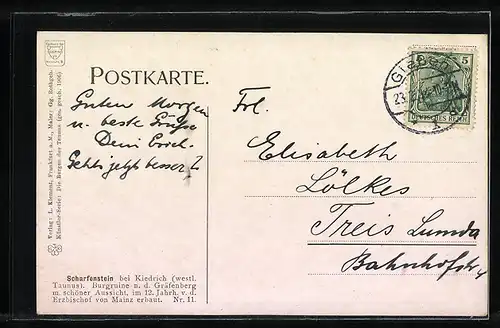 POSTKARTE.
Guten Morgen
u. beste Grüße
Dein
Geht's jetzt besser?
Frl.
Elisabeth
Lölkes
Treis Lumda
Bahnhofstr.
5
DEUTSCHES REICH
GIESSEN
23
Verlag: L. Klement, Frankfurt a.M., Maler: Gg. Rothgeb
Künstler-Serie: Die Burgen des Taunus (ges. gesch. 1906)
Scharfenstein bei Kiedrich (westl.
Taunus). Burgruine n. d. Gräfenberg
m. schöner Aussicht, im 12. Jahrh. v. d.
Erzbischof von Mainz erbaut. Nr. 11.